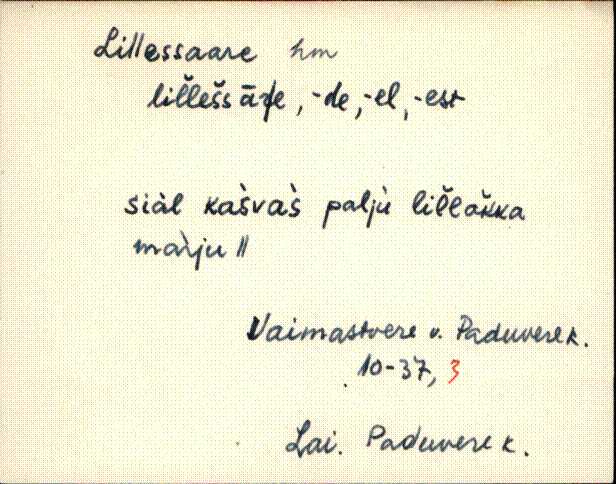 Lillessaare hm
lil̆leš̀sāre, -de, -el, -est
siàl kas̀vas̀ palju̇̀ lil̆lak̆ka
mar̀ju ||
Vaimastvere v. Paduvere k.
10-37, 3
Lai. Paduvere k.